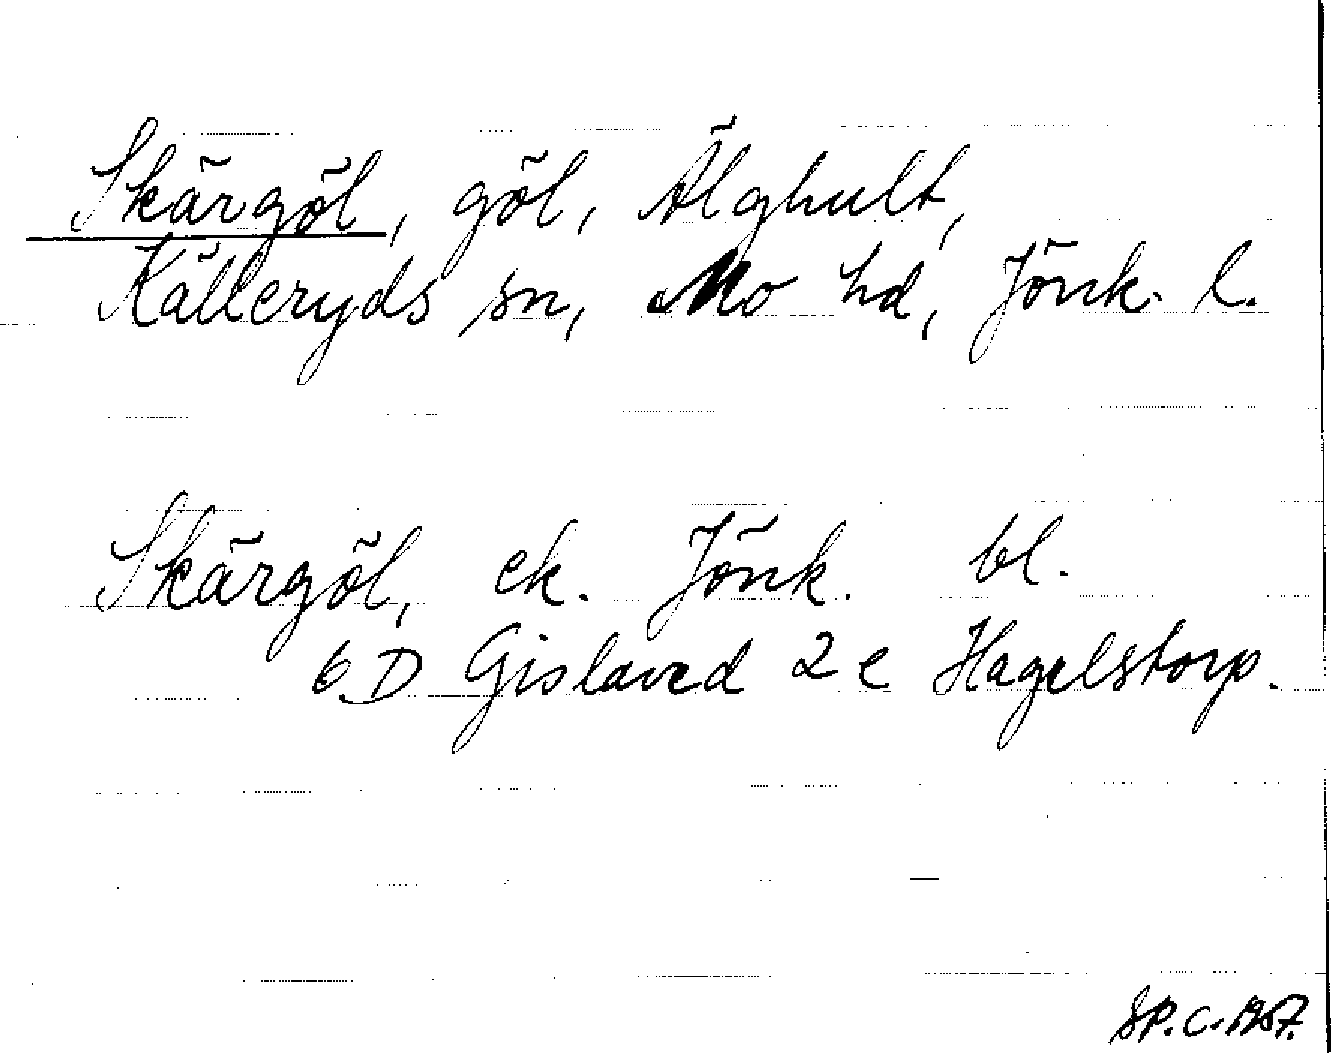 Skärgöl, göl, Älghult,
Källeryds sn, Mo hd, Jönk. l.
Skärgöl, ek. Jönk. bl.
6 D Gislaved 2 e Hagelstorp.
SP.C. 1957.